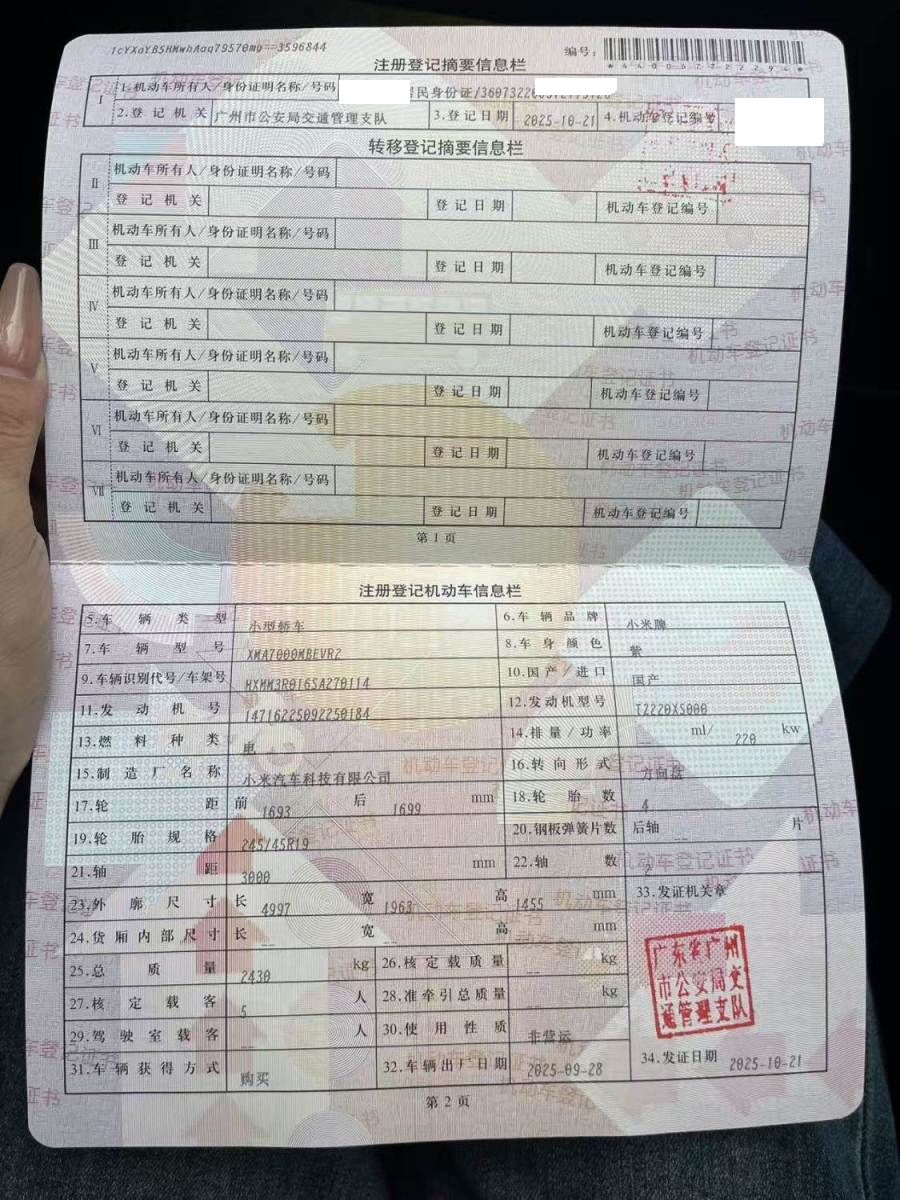 1cYXoYB5HMwhAaq79570mg==3596844
编号:
注册登记摘要信息栏
I 1.机动车所有人/身份证明名称/号码 居民身份证/360732200
2.登记机关 广州市公安局交通管理支队 3.登记日期 2025-10-21 4.机动车登记编号
转移登记摘要信息栏
II 机动车所有人/身份证明名称/号码
登记机关 登记日期 机动车登记编号
III 机动车所有人/身份证明名称/号码
登记机关 登记日期 机动车登记编号
IV 机动车所有人/身份证明名称/号码
登记机关 登记日期 机动车登记编号
V 机动车所有人/身份证明名称/号码
登记机关 登记日期 机动车登记编号
VI 机动车所有人/身份证明名称/号码
登记机关 登记日期 机动车登记编号
VII 机动车所有人/身份证明名称/号码
登记机关 登记日期 机动车登记编号
第1页
注册登记机动车信息栏
5.车辆类型 小型轿车 6.车辆品牌 小米牌
7.车辆型号 XMA7000MBEVR2 8.车身颜色 紫
9.车辆识别代号/车架号 HXMM3R016SA270114 10.国产/进口 国产
11.发动机号 14716225092250184 12.发动机型号 TZ220XS000
13.燃料种类 电 14.排量/功率 -- ml/ 220 kw
15.制造厂名称 小米汽车科技有限公司 16.转向形式 方向盘
17.轮距 前 1693 后 1699 mm 18.轮胎数 4
19.轮胎规格 245/45R19 20.钢板弹簧片数 后轴 -- 片
21.轴距 3000 mm 22.轴数 2
23.外廓尺寸 长 4997 宽 1963 高 1455 mm 33.发证机关章
24.货厢内部尺寸 长 -- 宽 -- 高 -- mm
广东省广州市公安局交通管理支队
25.总质量 2430 kg 26.核定载质量 -- kg
27.核定载客 5 人 28.准牵引总质量 -- kg
29.驾驶室载客 -- 人 30.使用性质 非营运
31.车辆获得方式 购买 32.车辆出厂日期 2025-09-28 34.发证日期 2025-10-21
第2页